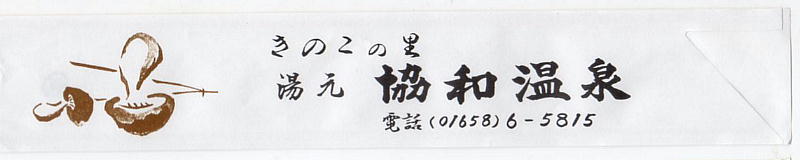 きのこの里
湯元 協和温泉
電話(01658)6-5815